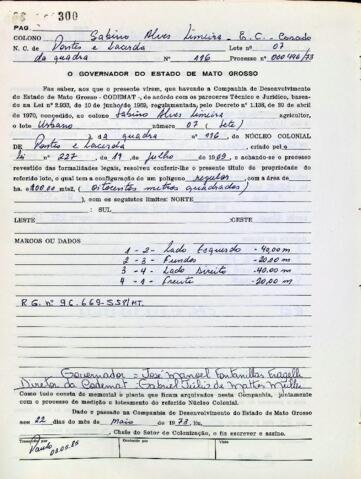 300
PAG
COLONO Sabino Alves Limeira - E. C. Casado
N. C. de Pontes e Lacerda Lote nº 07
da quadra Nº 116 Processo nº
O GOVERNADOR DO ESTADO DE MATO GROSSO
Faz saber, aos que o presente virem, que havendo a Companhia de Desenvolvimento
do Estado de Mato Grosso - CODEMAT -, de acôrdo com os pareceres Técnico e Jurídico, basea-
das na Lei nº 2.933, de 10 de junho de 1969, regulamentada pelo Decreto nº 1.138, de 30 de abril
de 1970, concedido, ao colono Sabino Alves Limeira agricultor,
o lote Urbano número 07 (sete)
da quadra nº 116, do NÚCLEO COLONIAL
DE Pontes e Lacerda, criado pela
Lei nº 227, de 19 de Julho de, e achando-se o processo
revestido das formalidades legais, resolveu conferir-lhe o presente título de propriedade do
referido lote, o qual tem a configuração de um polígono regular com a área de
ha. 800.00 mts2, (Oitocentos metros quadrados)
), com os seguintes limites: NORTE
: SUL
LESTE OESTE
MARCOS OU DADOS
1 - 2 - Lado Esquerdo - 40,00 m
2 - 3 - Fundos - 20,00 m
3 - 4 - Lado Direito - 40.00 m
4 - 1 - Frente - 20,00 m
R.G. nº 96.669-SSP/MT.
Governador - José Manoel Fontanillas Fragelli
Diretor da Codemat - Gabriel Julio de Mattos Müller
Como tudo consta do memorial e planta que ficam arquivados nesta Companhia, juntamente
com o processo de medição e loteamento do referido Núcleo Colonial.
Dado e passado na Companhia de Desenvolvimento do Estado de Mato Grosso
aos 22 dias do mês de maio de 1973.
, Chefe do Setor de Colonização, o fiz escrever e assino.
Transcrito por Conferido por Visto
Paulo